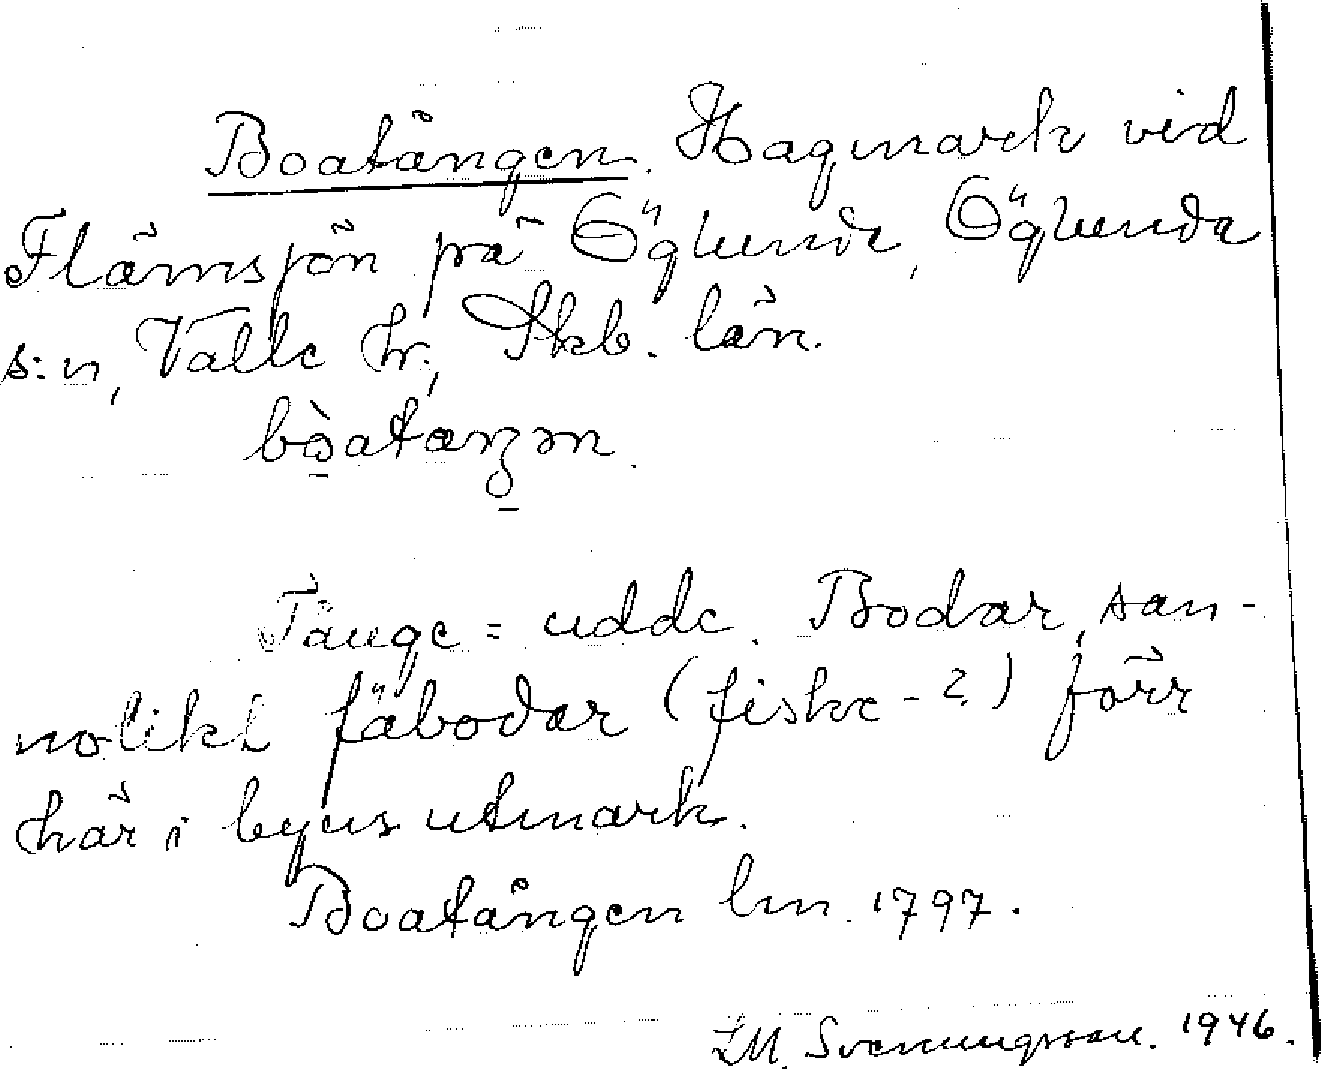 Boatången. Hagmark vid
Flämsjön på Öglunda, Öglunda
s:n, Valle hr., Skb. län.
bòataŋən.
Tånge = udde. Bodar, san-
nolikt fäbodar (fiske-?) förr
här i byns utmark.
Boatången lm. 1797.
Svenungsson. 1946.